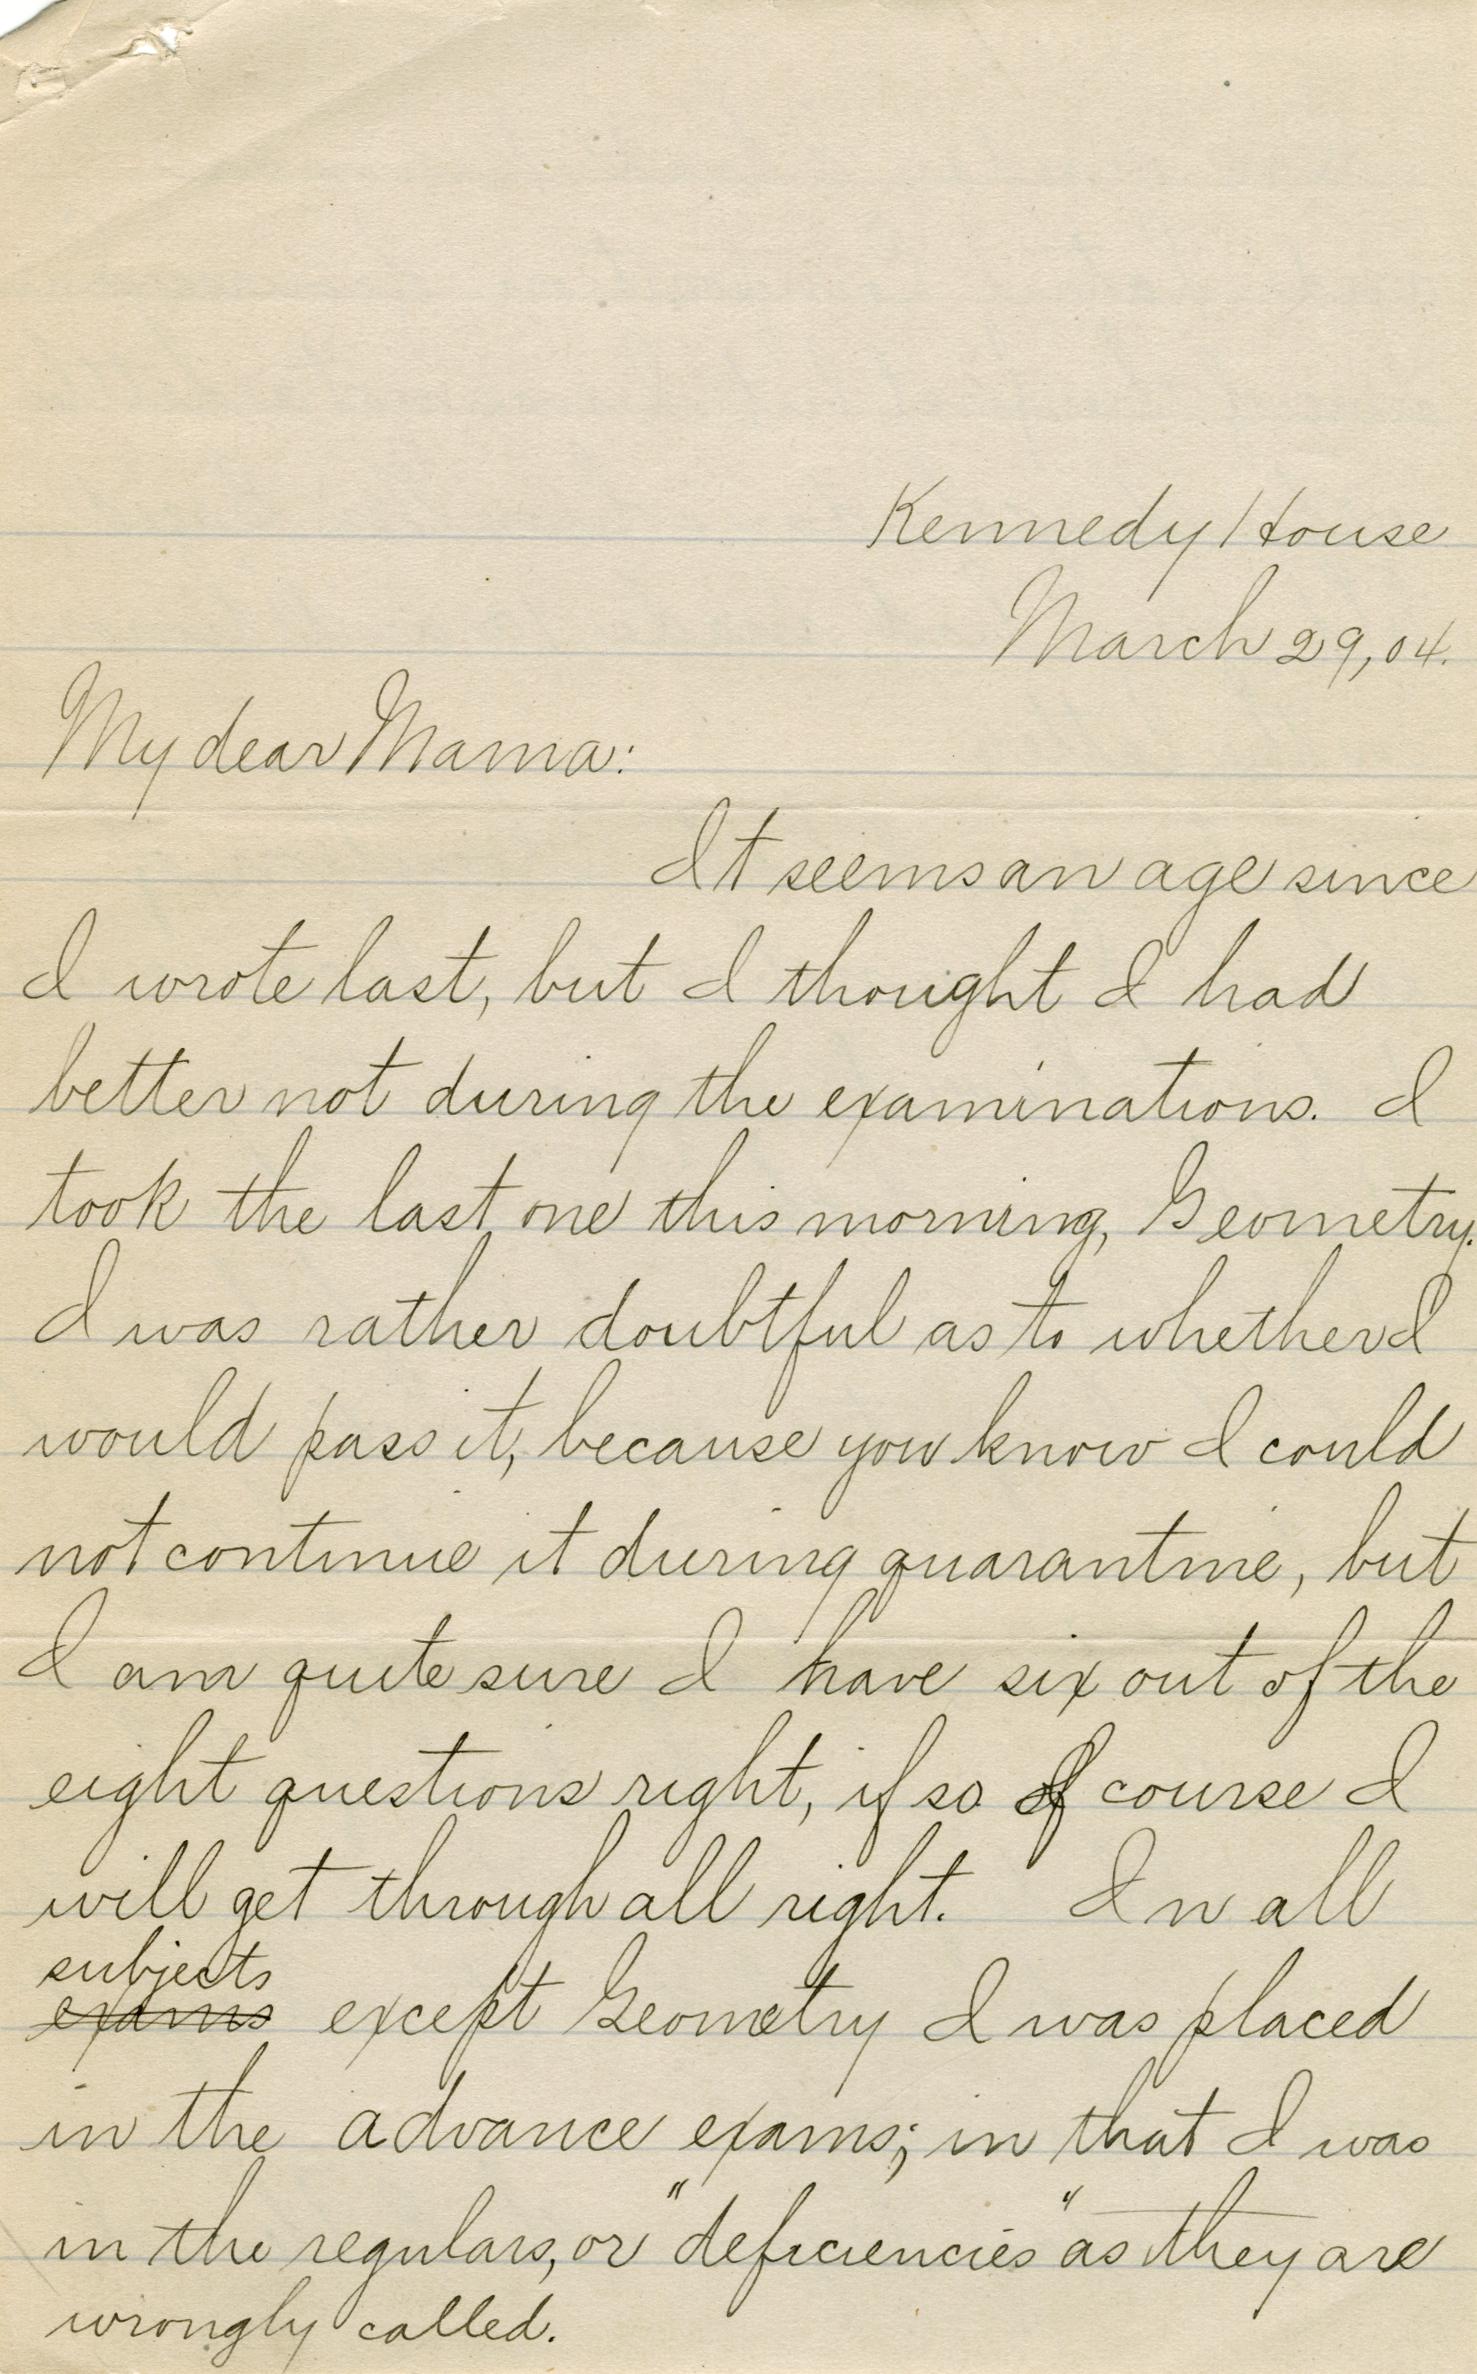 Kennedy House
March 29, 04.
My dear Mama:
It seems an age since
I wrote last, but I thought I had
better not during the examinations. I
took the last one this morning, Geometry.
I was rather doubtful as to whether I
would pass it, because you know I could
not continue it during quarantine, but
I am quite sure I have six out of the
eight questions right, if so of course I
will get through all right. In all
subjects
exams except Geometry I was placed
in the advance exams; in that I was
in the regulars, or "deficiencies" as they are
wrongly called.